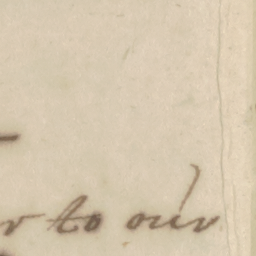 to our